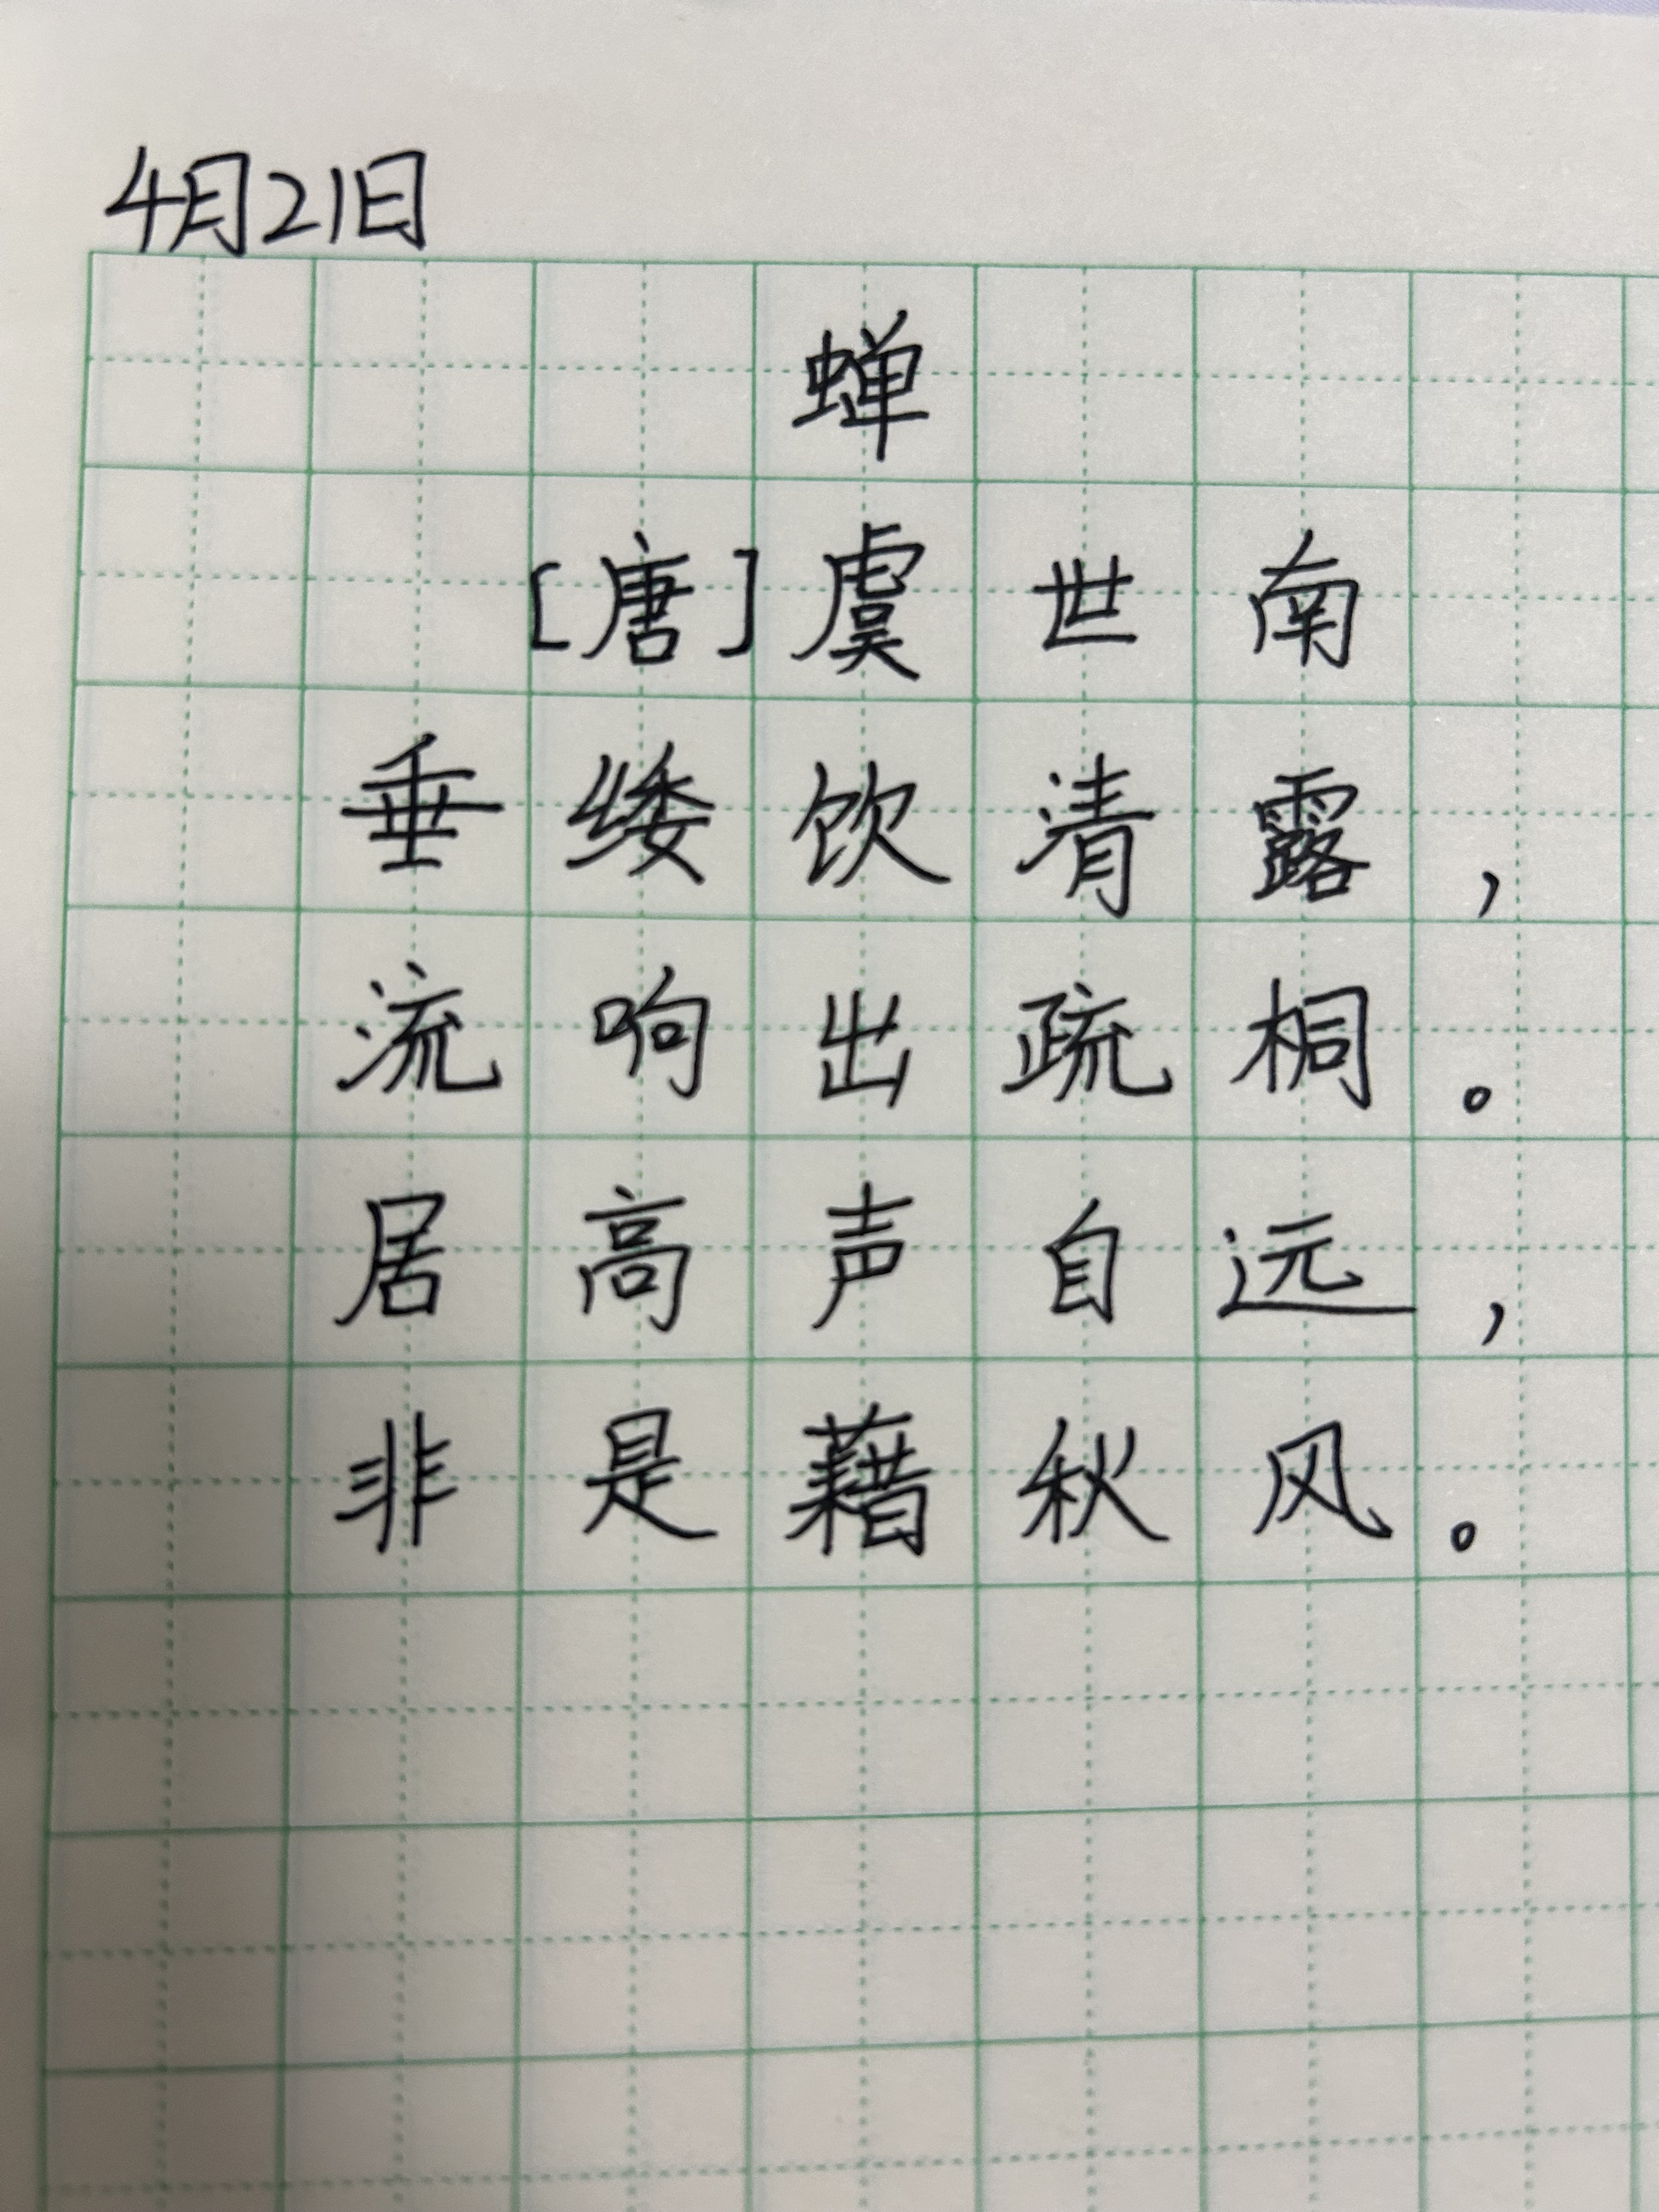 4月21日
蝉
[唐]虞世南
垂緌饮清露，
流响出疏桐。
居高声自远，
非是藉秋风。